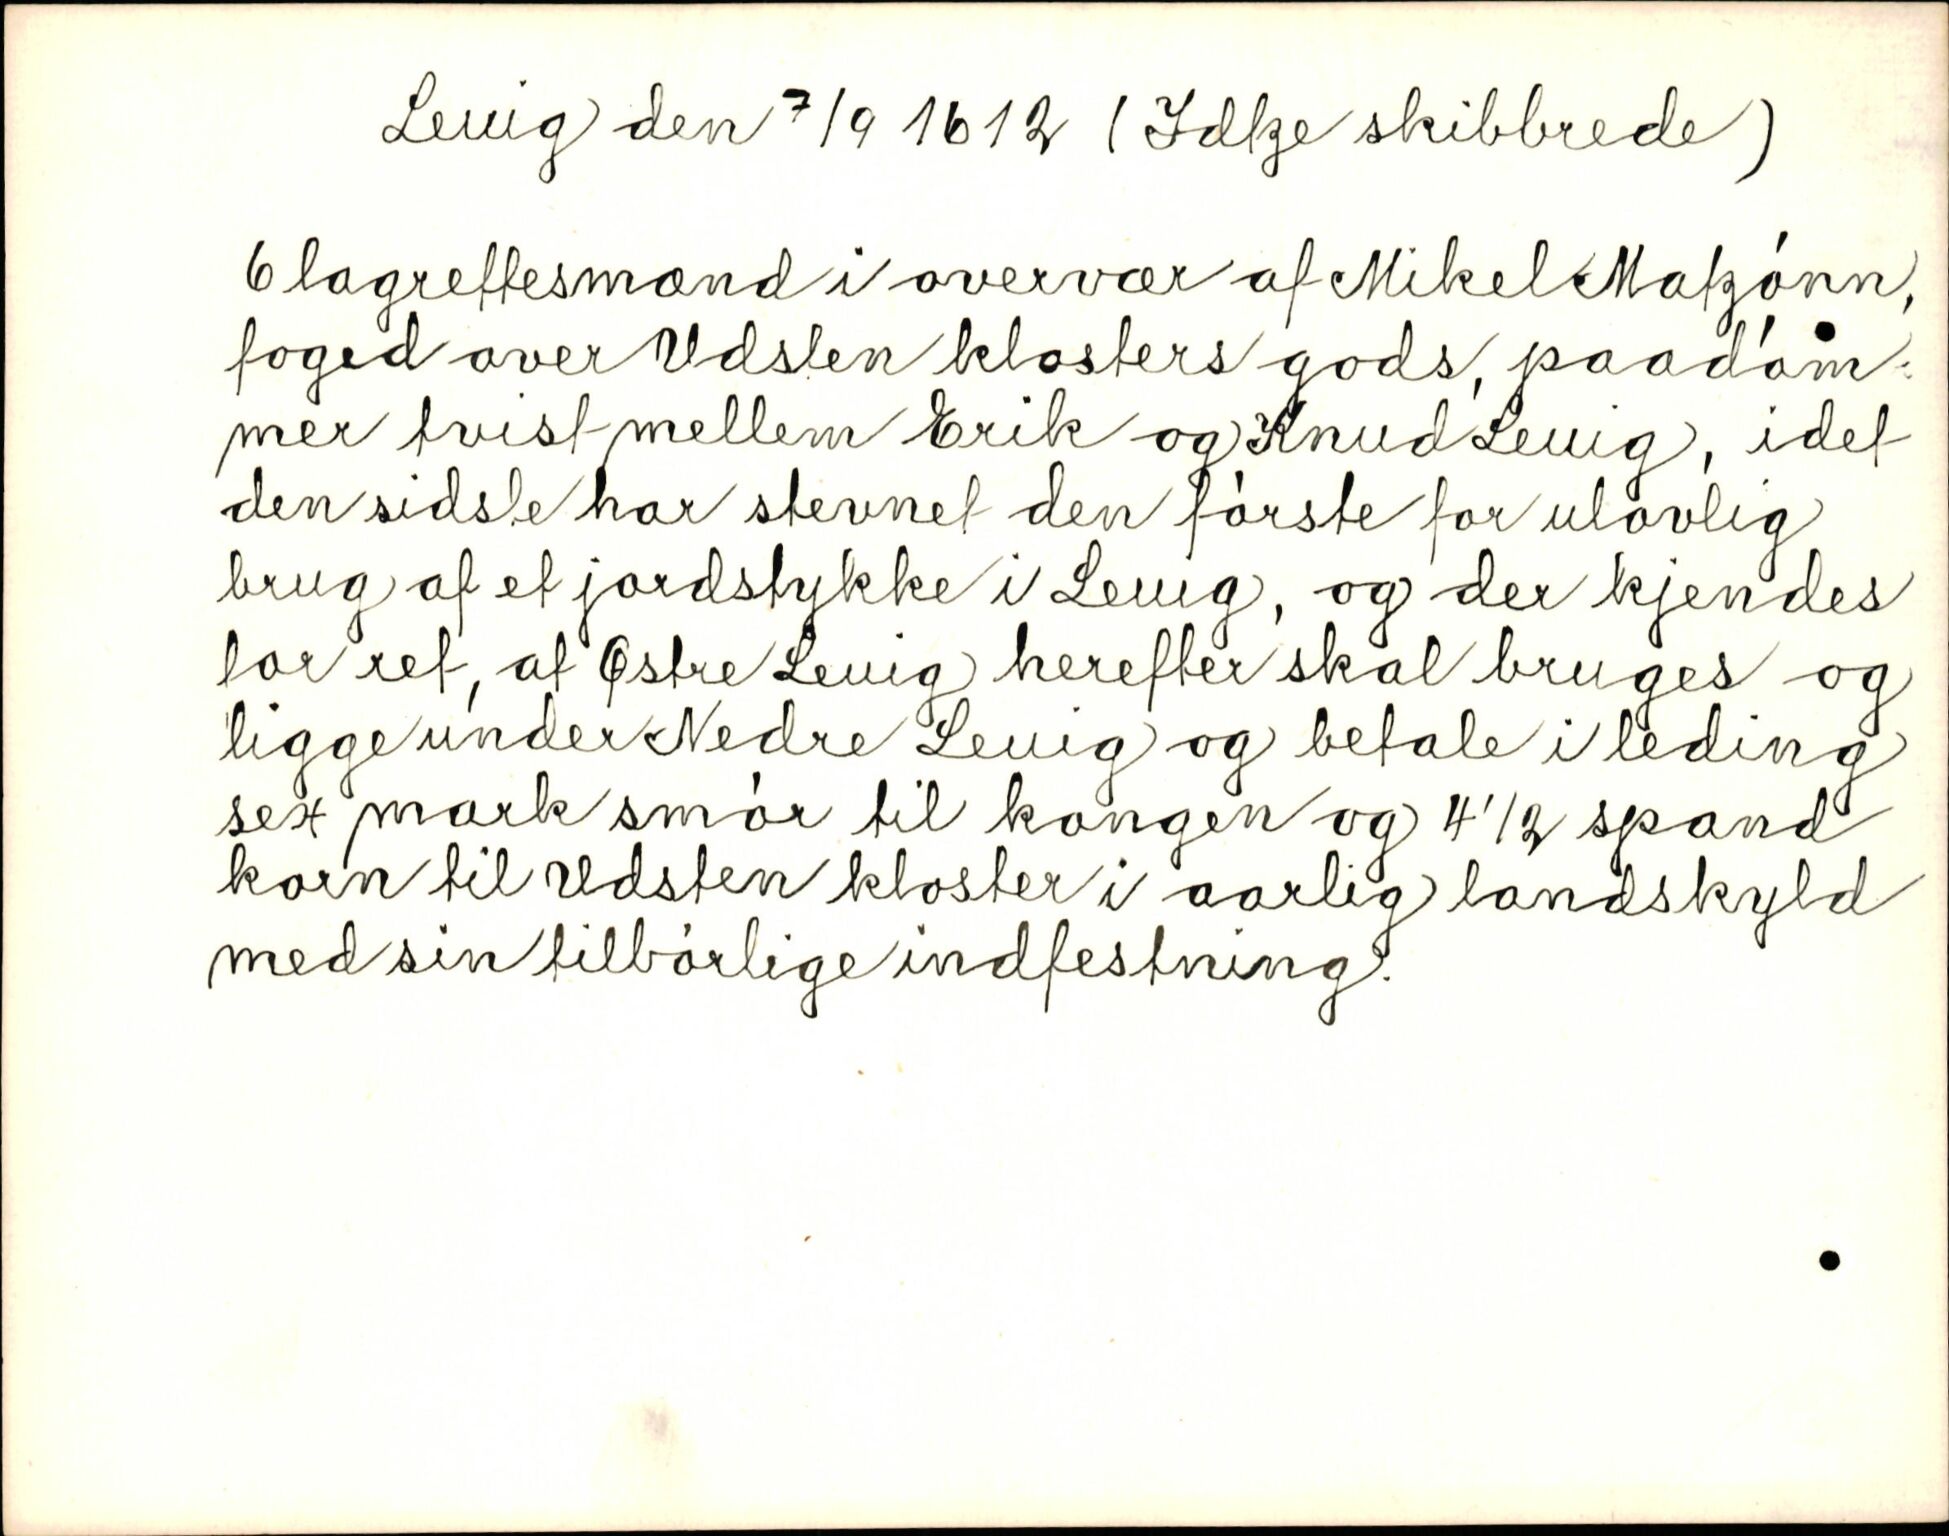 Leuig den 7/9 1612 (Idtze skibbrede)
6 lagrettesmænd i overvær af Mikel Matzónn,
foged over Udsten klosters gods, paadóm-
mer tvist mellem Erik og Knud Leuig, idet
den sidste har stevnet den fórste for ulovlig
brug af et jordstykke i Leuig, og der kjendes
for ret, at Østre Leuig herefter skal bruges og
ligge under Nedre Leuig og betale i leding
sex mark smór til kongen og 4 1/2 spand
korn til Udsten kloster i aarlig landskyld
med sin tilbórlige indfestning.